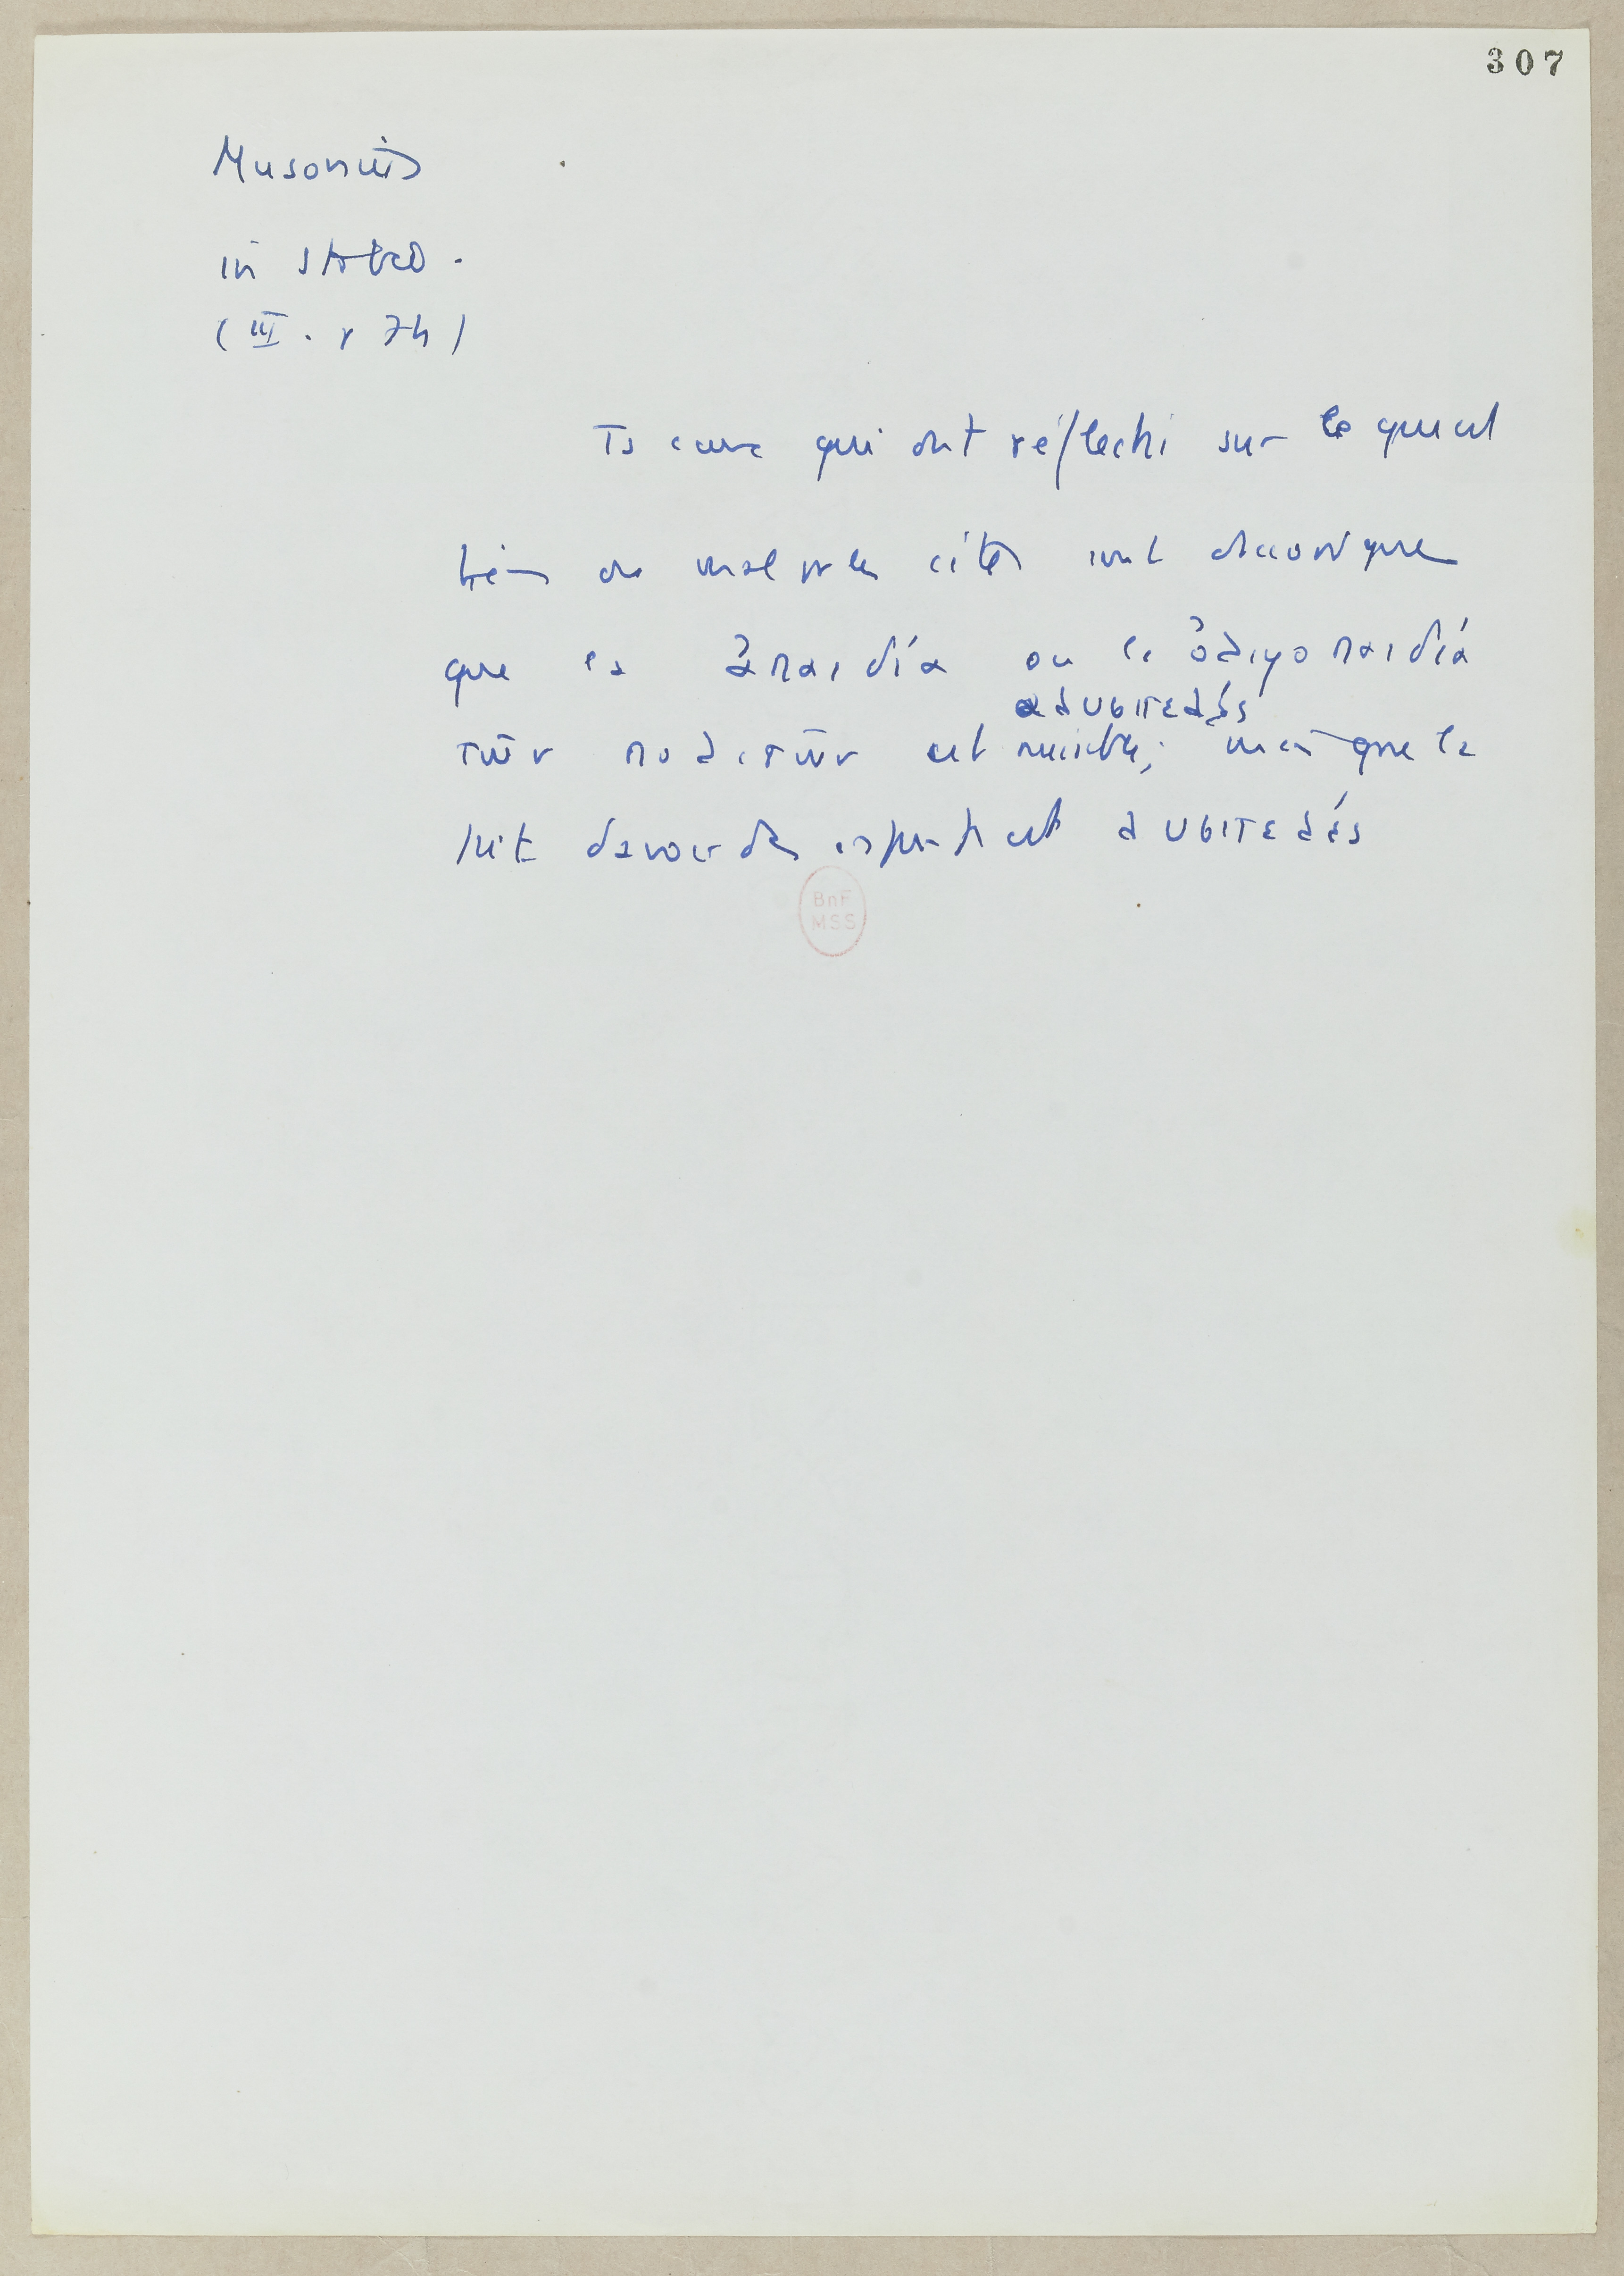 307
Musonius
in Stobée.
(III. p 74)
Ts ceux qui ont réfléchi sur ce qui est
bien ou mal pr les cités sont d'accord que
que la ἀπαιδία ou la ὀλιγοπαιδία
ἀλυσιτελές
τῶν πολιτῶν est nuisible; mais que le
fait d'avoir des enfants est λυσιτελές
BnF
MSS